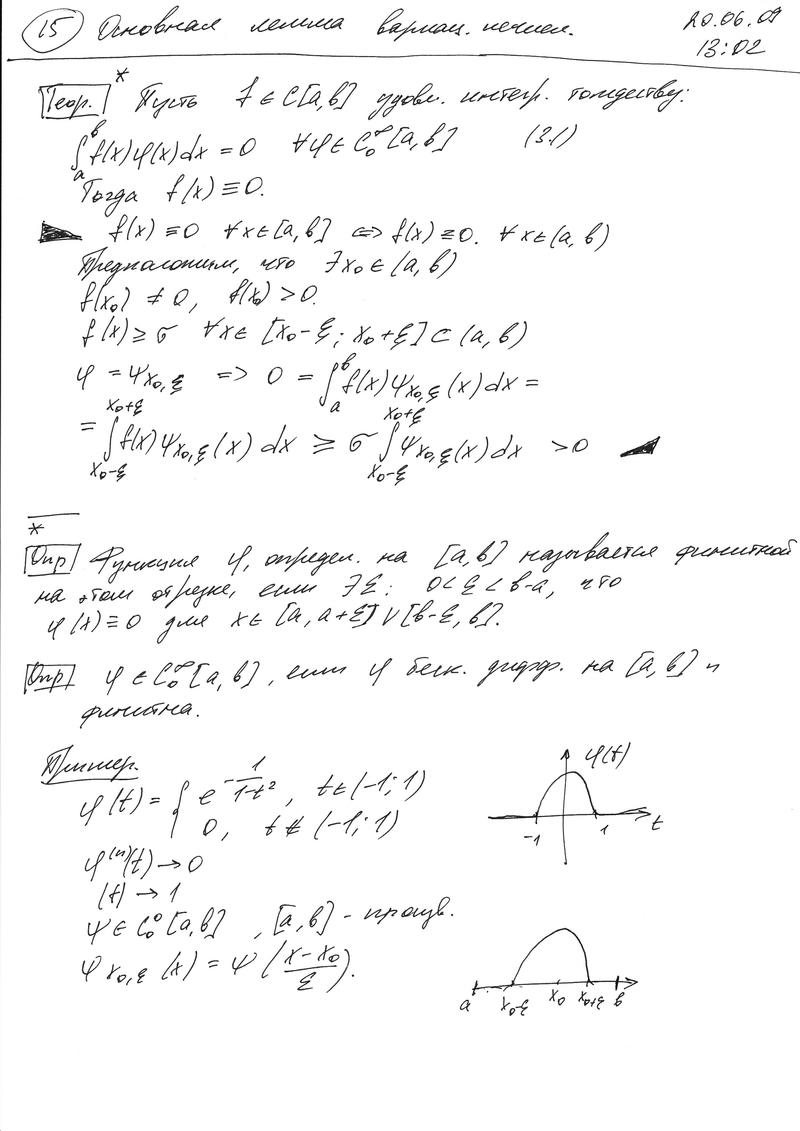 15 Основная лемма вариац. исчисл. 20.06.09
13:02
Теор.* Пусть f ∈ C[a,b] удовл. интегр. тождеству:
∫_a^b f(x)φ(x)dx = 0 ∀φ ∈ C_0^∞[a,b] (3.1)
Тогда f(x) ≡ 0.
f(x) ≡ 0 ∀x∈[a,b] ⇔ f(x) ≡ 0. ∀x∈(a,b)
Предположим, что ∃x_0 ∈ (a,b)
f(x_0) ≠ 0, f(x_0) > 0.
f(x) ≥ σ ∀x∈ [x_0-ξ; x_0+ξ] ⊂ (a,b)
φ = ψ_{x_0,ξ} => 0 = ∫_a^b f(x)ψ_{x_0,ξ}(x)dx =
= ∫_{x_0-ξ}^{x_0+ξ} f(x)ψ_{x_0,ξ}(x) dx ≥ σ ∫_{x_0-ξ}^{x_0+ξ} ψ_{x_0,ξ}(x)dx > 0
*
Опр Функция φ, определ. на [a,b] называется финитной
на этом отрезке, если ∃ξ: 0<ξ<b-a, что
φ(x) ≡ 0 для x∈ [a, a+ξ] ∨ [b-ξ, b].
Опр φ ∈ C_0^∞[a,b], если φ беск. дифф. на [a,b] и
финитна.
Пример.
φ(t) = { e^{-1/(1-t²)}, t∈(-1; 1)
0, t∉(-1; 1)
φ(t)
-1 1 t
φ^{(n)}(t) → 0
|t| → 1
ψ ∈ C_0^0[a,b], [a,b] - произв.
ψ_{x_0,ξ}(x) = ψ((x-x_0)/ξ).
a x_0-ξ x_0 x_0+ξ b